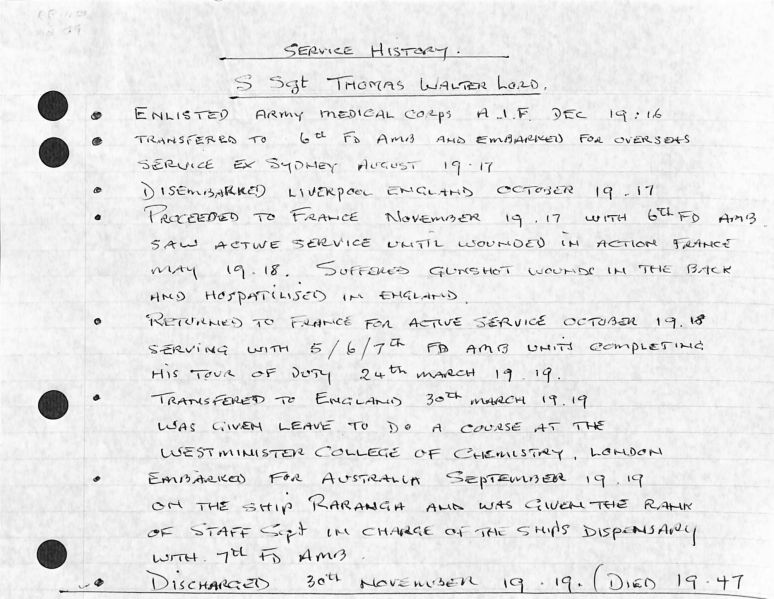 SERVICE HISTORY.
S Sgt THOMAS WALTER LORD.
• ENLISTED ARMY MEDICAL CORPS A.I.F. DEC 19:16
• TRANSFERRED TO 6th FD AMB AND EMBARKED FOR OVERSEAS
SERVICE EX SYDNEY AUGUST 19.17
• DISEMBARKED LIVERPOOL ENGLAND OCTOBER 19.17
• PROCEEDED TO FRANCE NOVEMBER 19.17 WITH 6th FD AMB
SAW ACTIVE SERVICE UNTIL WOUNDED IN ACTION FRANCE
MAY 19.18. SUFFERED GUNSHOT WOUNDS IN THE BACK
AND HOSPATILISED IN ENGLAND.
• RETURNED TO FRANCE FOR ACTIVE SERVICE OCTOBER 19.18
SERVING WITH 5/6/7th FD AMB UNITS COMPLETING
HIS TOUR OF DUTY 24th MARCH 19.19.
• TRANSFERED TO ENGLAND 30th MARCH 19.19
WAS GIVEN LEAVE TO DO A COURSE AT THE
WESTMINISTER COLLEGE OF CHEMISTRY, LONDON
• EMBARKED FOR AUSTRALIA SEPTEMBER 19.19
ON THE SHIP RARANGA AND WAS GIVEN THE RANK
OF STAFF Sgt IN CHARGE OF THE SHIPS DISPENSARY
WITH 7th FD AMB.
• DISCHARGED 30th NOVEMBER 19.19. (DIED 19.47